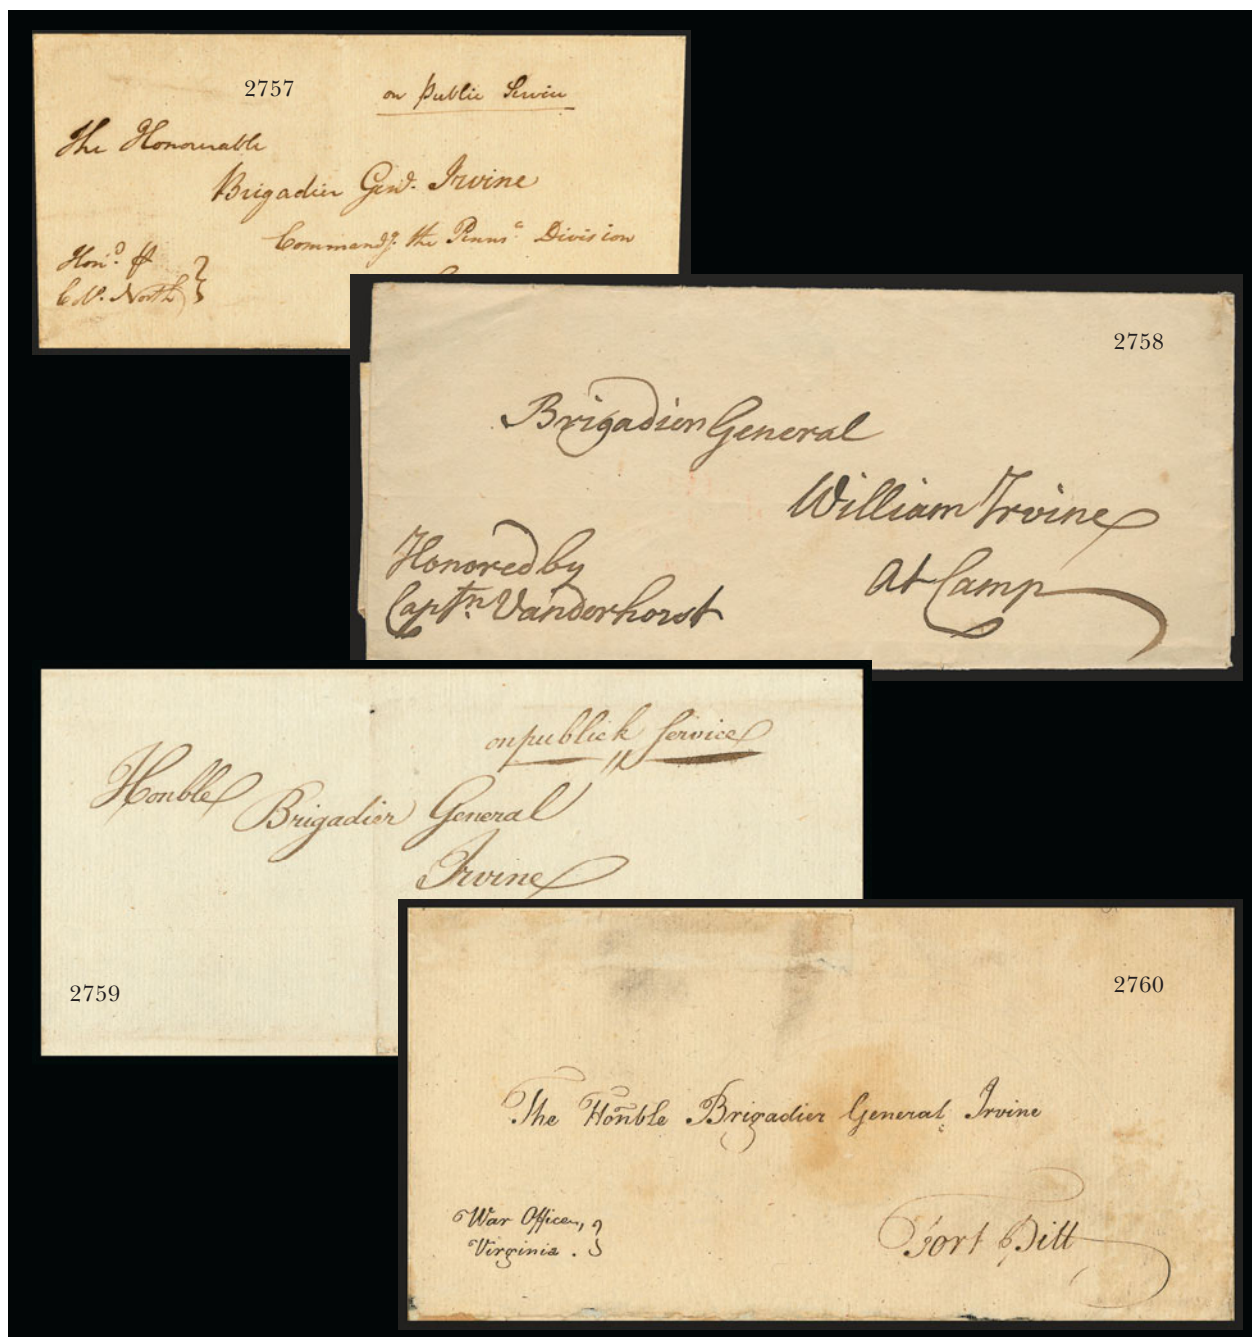 2757
on Public Service
The Honourable
Brigadier Genl. Irvine
Commandg. the Pennsa. Division
Hond. ⅌
Coll. North
2758
Brigadier General
William Irvine
At Camp
Honored by
Captn. Vanderhorst
on publick Service
Honble
Brigadier General
Irvine
2759
2760
The Honble Brigadier General Irvine
War Office,
Virginia.
Fort Pitt